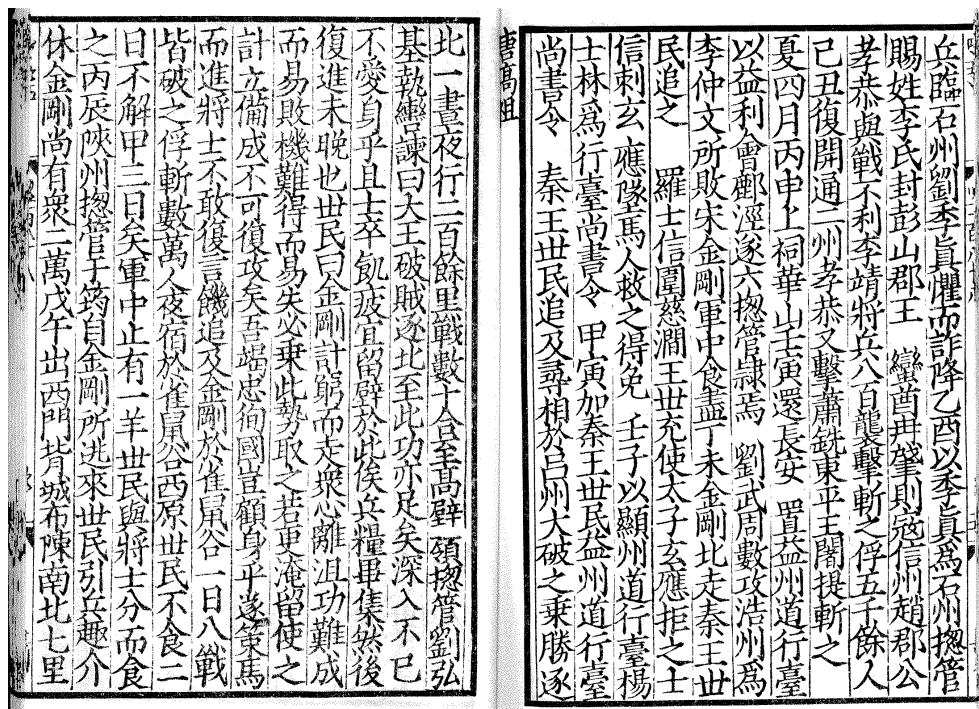 兵臨石州劉季真懼而詐降乙酉以季真爲石州揔管
賜姓李氏封彭山郡王　蠻酋冉肇則寇信州趙郡公
孝恭與戰不利李靖將兵八百襲擊斬之俘五千餘人
己丑復開通二州孝恭又擊蕭銑東平王闍提斬之
夏四月丙申上祠華山壬寅還長安　置益州道行臺
以益利會鄜涇遂六揔管隷焉　劉武周數攻浩州爲
李仲文所敗宋金剛軍中食盡丁未金剛北走秦王世
民追之　羅士信圍慈澗王世充使太子玄應拒之士
信刺玄應墜馬人救之得免　壬子以顯州道行臺楊
士林爲行臺尚書令　甲寅加秦王世民益州道行臺
尚書令　秦王世民追及尋相於吕州大破之乗勝逐
唐髙祖
北一晝夜行二百餘里戰數十合至髙壁嶺揔管劉弘
基執轡諫曰大王破賊逐北至此功亦足矣深入不已
不愛身乎且士卒飢疲宜留壁於此俟兵糧畢集然後
復進未晚也世民曰金剛計窮而走衆心離沮功難成
而易敗機難得而易失必乗此勢取之若更淹留使之
計立備成不可復攻矣吾竭忠徇國豈顧身乎遂策馬
而進將士不敢復言饑追及金剛於雀鼠谷一日八戰
皆破之俘斬數萬人夜宿於雀鼠谷西原世民不食二
日不解甲三日矣軍中止有一羊世民與將士分而食
之丙辰陝州揔管于筠自金剛所逃來世民引兵趣介
休金剛尚有衆二萬戊午出西門背城布陳南北七里